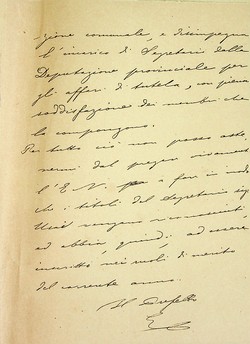 gione comunale, e disimpegna
l'incarico di Segretario della
Deputazione provinciale per
gli affari di tutela, con piena
soddisfazione dei membri che
la compongono.
Per tutto ciò non posso aste
nermi dal pregare vivamente
l'E. V. a far in modo
che i titoli del Segretario sig
vengano riconosciuti
ed abbia, quindi, ad essere
inscritto nei ruoli di merito
del corrente anno.
Il Prefetto